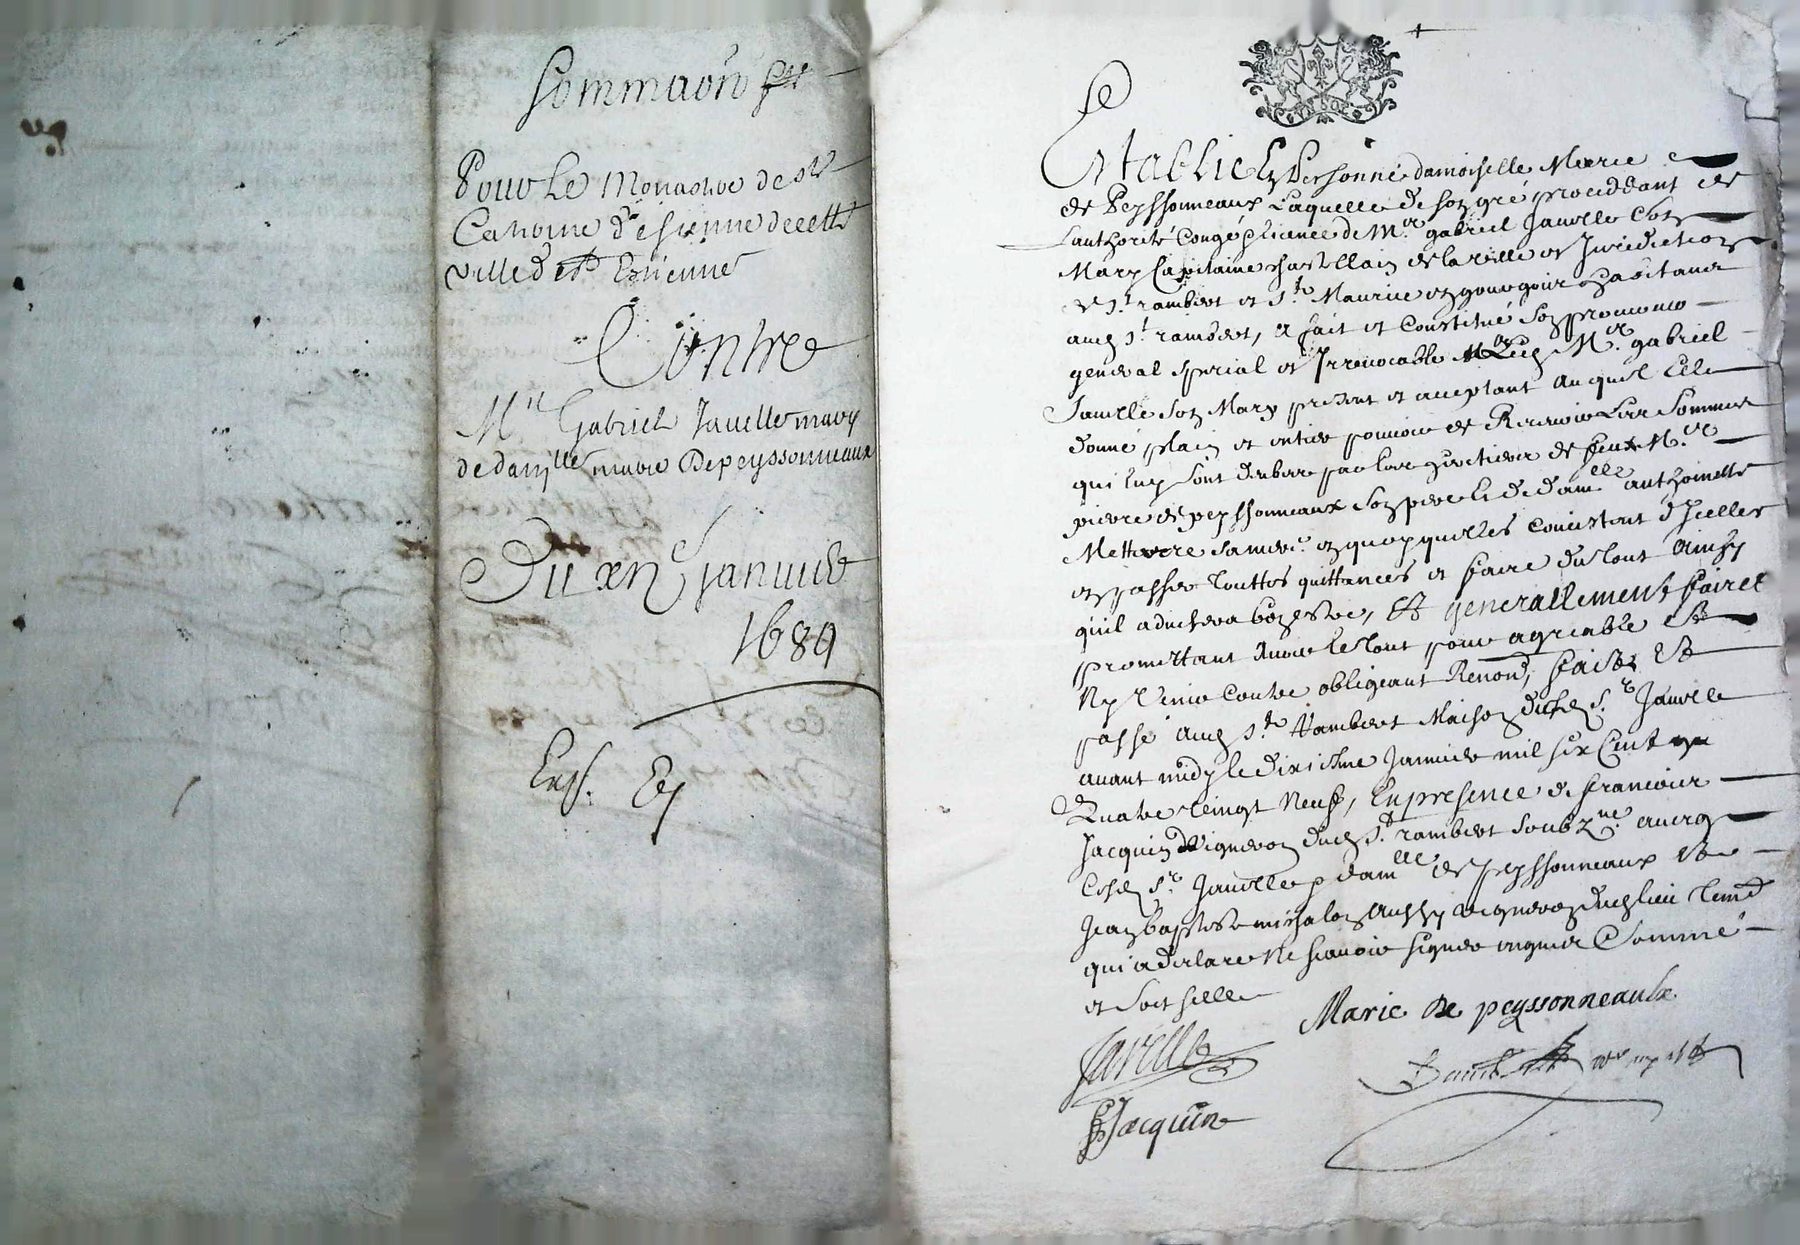 Sommaon
Pour Le Monastere de Ste
Catherine de sienne de cette
ville de St Estienne
Contre
Mre Gabriel Javelle mary
de damlle marie Depeyssonneaux
Du xne Janvier
1689
Exp.
Establie En Personne damoiselle Marie
de Peyssonneaux Laquelle de son gré procedant de
Lauthorité Congé & licence de Mre gabriel Javelle Son
Mary Capitaine chastellain de la ville et Jurediction
de St rambert et St Maurice en gourgois habitant
aud St rambert, a fait et Constitué Son procureur
general special et Irrevocable Led Mre gabriel
Javelle Son Mary present et acceptant auquel Elle
donne plain et entier pouvoir de Recevoir Les Sommes
qui luy Sont deubes par les heritiers de feu Mre
pierre de peyssonneaux Son pere & de damlle anthoinette
en quoy quelles concistent d'Icelles
en passer touttes quittances et faire du tout Ainsy
quil advisera bon estre, Et generallement faire &
promettant Avoir le tout pour agreable Et
Ny Venir Contre obligeant Renond, fait Et
passé Aud St Rambert Maison dud Sr Javelle
avant midy le dixiesme Janvier mil six Cent
Quatre Vingt Neuf, En presence de francois
Jacquin Vigneron dud St rambert Soubzne avec
Led Sr Javelle & damlle de Peyssonneaux Et
Jean baptiste michalon Aussy vigneron dud lieu
qui a declare Ne scavoir signer enquis & Sommé
et Soit scelle
Marie De peyssonneaulx
Javelle
Jacquin